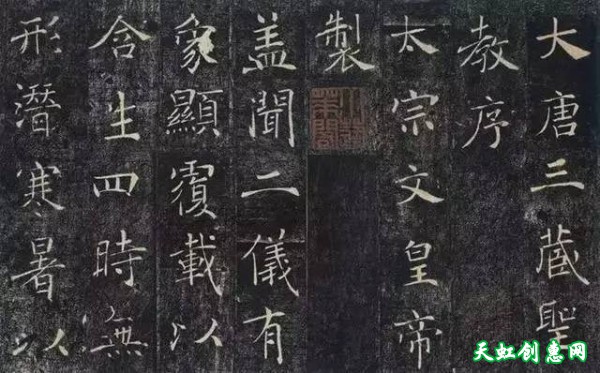 大唐三藏聖
教序
太宗文皇帝
製
蓋聞二儀有
象顯覆載以
含生四時無
形潛寒暑以
天虹创意网